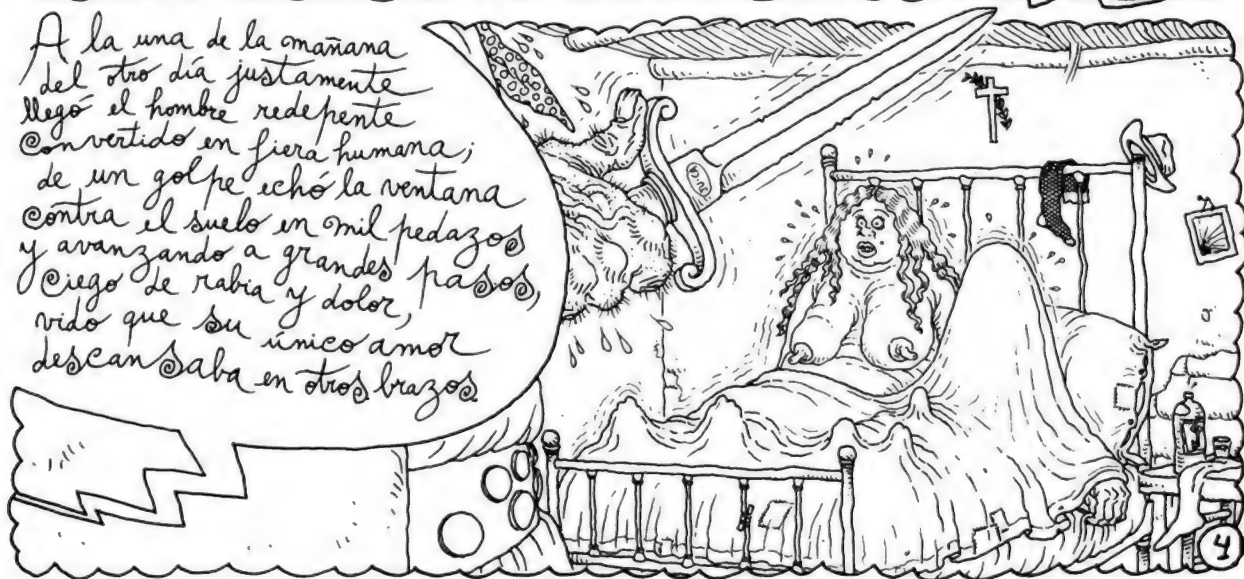 A la una de la mañana
del otro día justamente
llegó el hombre redepente
convertido en fiera humana;
de un golpe echó la ventana
contra el suelo en mil pedazos
y avanzando a grandes pasos,
ciego de rabia y dolor,
vido que su único amor
descansaba en otros brazos
4